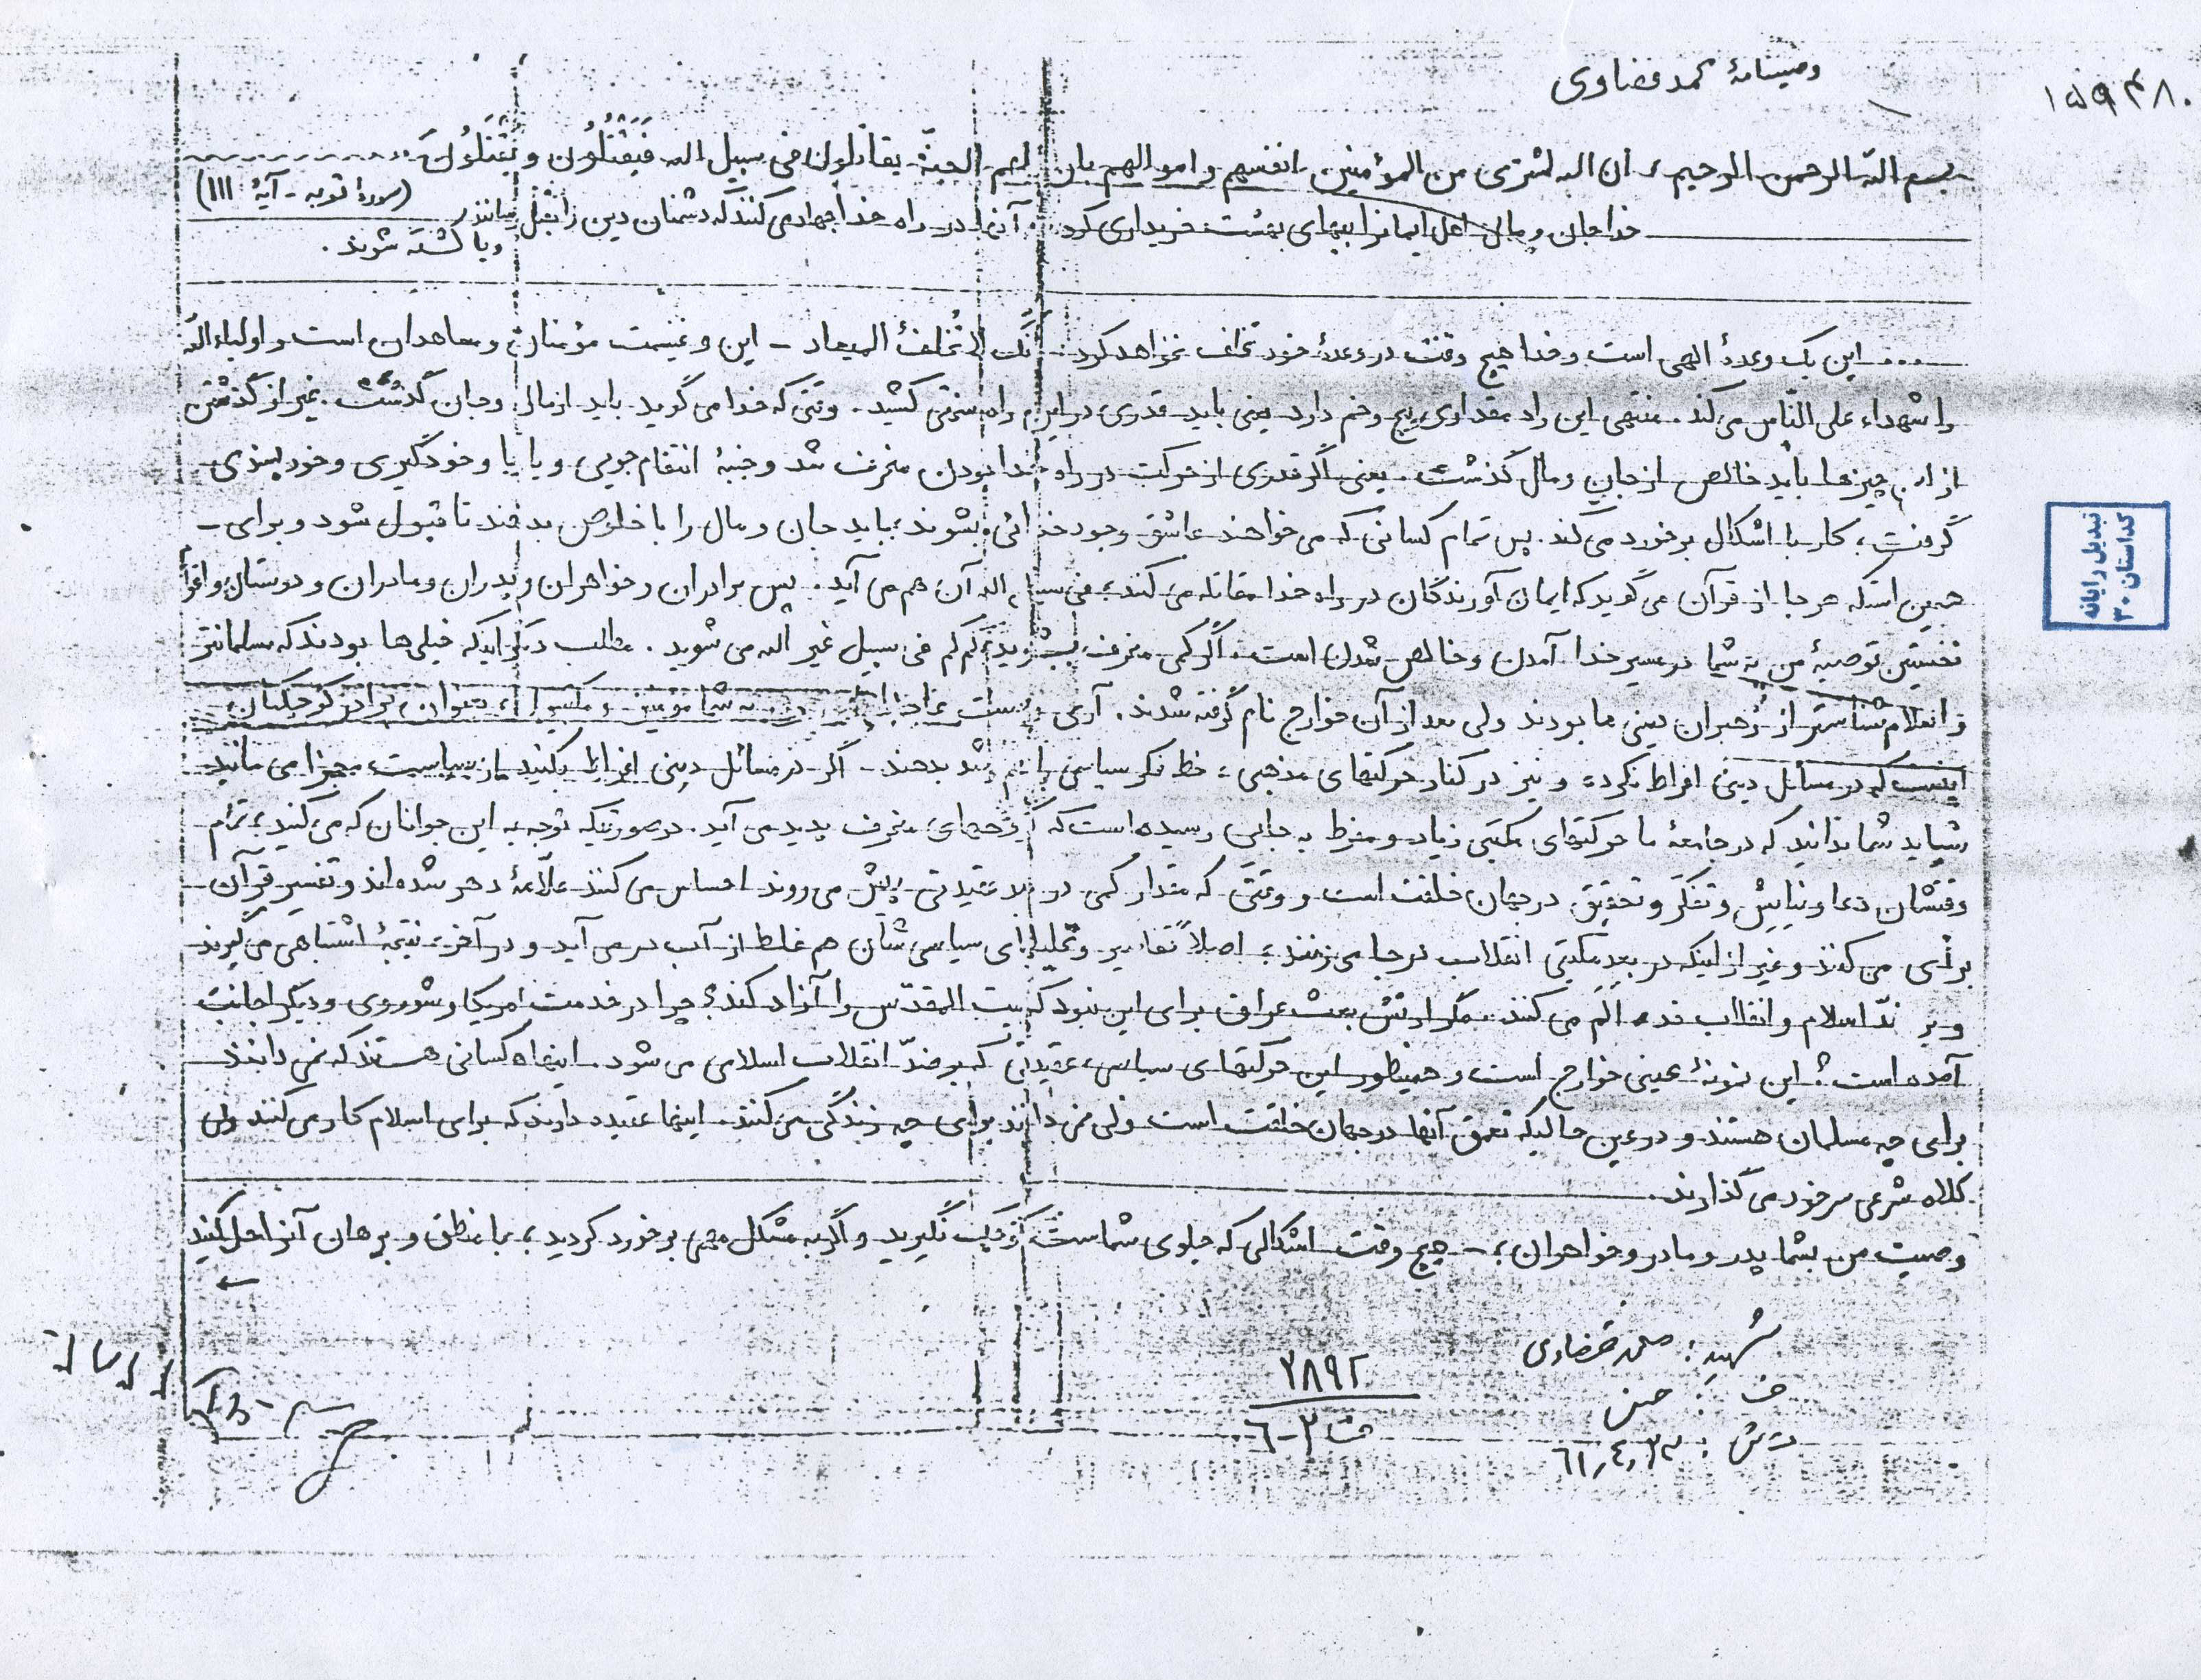 وصیتنامهٔ محمد قضاوی
۱۵۹۴۸۰
بسم الله الرحمن الرحیم، ان الله اشتری من المؤمنین انفسهم و اموالهم بان لهم الجنّة یقاتلون فی سبیل الله فَیَقْتُلُون و یُقْتَلُونَ
(سورهٔ توبه - آیهٔ ۱۱۱)
خدا جان و مال اهل ایمانرا ببهای بهشت خریداری کرد، آنها در راه خدا جهاد می کنند که دشمنان دین را بقتل رسانند
و یا کشته شوند.
.... این یک وعدهٔ الهی است و خدا هیچ وقت در وعدهٔ خود تخلف نخواهد کرد - انّک لا تُخلفُ المیعاد - این و غنیمت مؤمنان و مجاهدان است و اولیاء الله
را شهداء علی النّاس می کند. منتهی این راه مقداری پیچ و خم دارد یعنی باید قدری در این راه سختی کشید. وقتی که خدا می گوید باید از مال و جان گذشت. غیر از گذشتن
از این چیزها باید خالص از جان و مال گذشت. یعنی اگر قدری از حرکت در راه خدا بودن منحرف شد و جنبهٔ انتقام جویی و یا ریا و خودگیری و خود پسندی
گرفت، کار با اشکال برخورد می کند. پس تمام کسانی که می خواهند عاشق وجود خدائی بشوند، باید جان و مال را با خلوص بدهند تا قبول شود و برای -
همین استکه هر جا از قرآن می گوید که ایمان آورندگان در راه خدا مقاتله می کنند، فی سبیل الله آن هم می آید. پس برادران و خواهران و پدران و مادران و دوستان و اقوا
نخستین توصیهٔ من به شما در مسیر خدا آمدن و خالص شدن است. اگر کمی منحرف بشوید، کم کم فی سبیل غیر الله می شوید. مطلب دیگر اینکه خیلی ها بودند که مسلمانتر
و اسلام شناستر از رهبران دینی ما بودند ولی بعد از آن خوارج نام گرفته شدند. آری به شما بعنوان برادر کوچکتان
اینست که در مسائل دینی افراط نکرده و نیز در کنار حرکتهای مذهبی، خط فکر سیاسی را هم رشد بدهند - اگر در مسائل دینی افراط بکنید از سیاست مجزا می مانید
شاید شما ندانید که در جامعهٔ ما حرکتهای مکتبی زیاد و مفرط به جایی رسیده است که گروههای منحرف پدید می آید. در صورتیکه توجه به این جوانان که می کنید، تمام
وقتشان دعا و نیایش و تفکر و تحقیق در جهان خلقت است و وقتی که مقدار کمی در عقیدتی پیش می روند احساس می کنند علّامهٔ دهر شده اند و تفسیر قرآن
برأی می کنند و غیر از اینکه در بعد مکتبی انقلاب درجا می زنند، اصلاً تفاسیر و تحلیلهای سیاسی شان هم غلط از آب در می آید و در آخر، نتیجهٔ اشتباهی می گیرند
و بر ضدّ اسلام و انقلاب قد علم می کنند. مگر ارتش بعث عراق برای این نبود که بیت المقدّس را آزاد کند؟ چرا در خدمت امریکا و شوروی و دیگر اجانب
آمده است؟ این نمونهٔ عینی خوارج است و همینطور این حرکتهای سیاسی، عقیدتی که بر ضدّ انقلاب اسلامی می شود. اینها کسانی هستند که نمی دانند
برای چه مسلمان هستند و در عین حالیکه تعمق آنها در جهان خلقت است ولی نمی دانند برای چه زندگی می کنند. اینها عقیده دارند که برای اسلام کار می کنند ولی
کلاه شرعی سر خود می گذارند.
وصیت من بشما پدر و مادر و خواهران، - هیچ وقت اشکالی که جلوی شماست کوچک نگیرید و اگر به مشکل مهمی برخورد کردید، با منطق و برهان آنرا حل کنید
←
شهید: محمد قضاوی
ف: حسن
ت ش: ۶۱،۴،۲۳
۲۸۹۲
ت ۲-۶
تبدیل رایانه
کد استان ۳۰